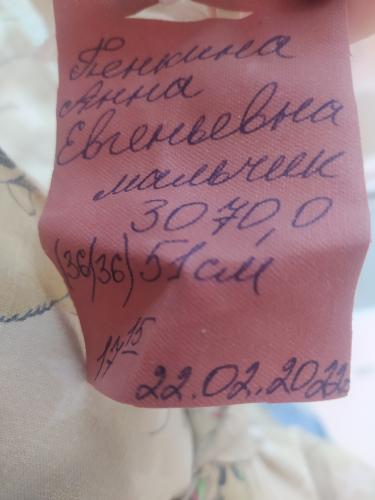 Пенкина
Анна
Евгеньевна
мальчик
3070,0
(36/36) 51см
17 15
22.02.2022